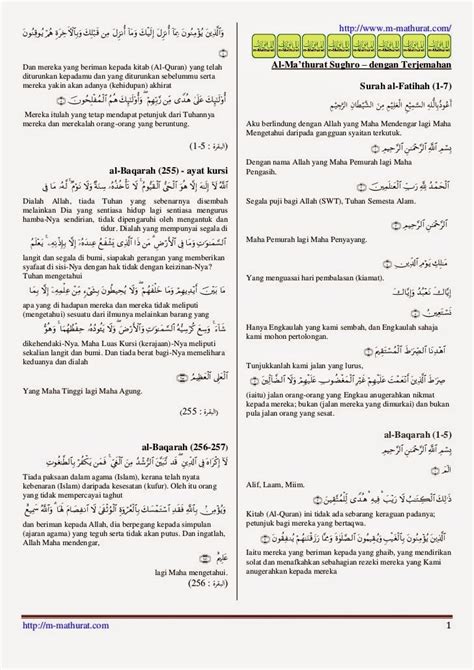 http://www.m-mathurat.com/
Al-Ma'thurat Sughro – dengan Terjemahan
Surah al-Fatihah (1-7)
أَعُوذُ بِاللَّهِ السَّمِيعِ الْعَلِيمِ مِنَ الشَّيْطَانِ الرَّجِيمِ
Aku berlindung dengan Allah yang Maha Mendengar lagi Maha
Mengetahui daripada gangguan syaitan terkutuk.
بِسْمِ ٱللَّهِ ٱلرَّحْمَٰنِ ٱلرَّحِيمِ
Dengan nama Allah yang Maha Pemurah lagi Maha
Pengasih.
ٱلْحَمْدُ لِلَّهِ رَبِّ ٱلْعَٰلَمِينَ
Segala puji bagi Allah (SWT), Tuhan Semesta Alam.
ٱلرَّحْمَٰنِ ٱلرَّحِيمِ
Maha Pemurah lagi Maha Penyayang.
مَٰلِكِ يَوْمِ ٱلدِّينِ
Yang menguasai hari pembalasan (kiamat).
إِيَّاكَ نَعْبُدُ وَإِيَّاكَ
نَسْتَعِينُ
Hanya Engkaulah yang kami sembah, dan Engkaulah sahaja
kami mohon pertolongan.
ٱهْدِنَا ٱلصِّرَٰطَ ٱلْمُسْتَقِيمَ
Tunjukkanlah kami jalan yang lurus.
صِرَٰطَ ٱلَّذِينَ أَنْعَمْتَ عَلَيْهِمْ غَيْرِ ٱلْمَغْضُوبِ عَلَيْهِمْ وَلَا ٱلضَّآلِّينَ
(iaitu) jalan orang-orang yang Engkau anugerahkan nikmat
kepada mereka; bukan (jalan) mereka yang dimurkai) dan bukan
pula jalan orang yang sesat.
al-Baqarah (1-5)
بِسْمِ ٱللَّهِ ٱلرَّحْمَٰنِ ٱلرَّحِيمِ
الٓمٓ
Alif, Laam, Miim.
ذَٰلِكَ ٱلْكِتَٰبُ لَا رَيْبَ ۛ فِيهِ ۛ هُدًى لِّلْمُتَّقِينَ
Kitab (Al-Quran) ini tidak ada sebarang keraguan padanya;
petunjuk bagi mereka yang bertaqwa.
ٱلَّذِينَ يُؤْمِنُونَ بِٱلْغَيْبِ وَيُقِيمُونَ ٱلصَّلَوٰةَ وَمِمَّا رَزَقْنَٰهُمْ يُنفِقُونَ
Iaitu mereka yang beriman kepada yang ghaib, yang mendirikan
solat dan menafkahkan sebahagian rezeki mereka yang Kami
anugerahkan kepada mereka
وَٱلَّذِينَ يُؤْمِنُونَ بِمَآ أُنزِلَ إِلَيْكَ وَمَآ أُنزِلَ مِن قَبْلِكَ وَبِٱلْءَاخِرَةِ هُمْ يُوقِنُونَ
Dan mereka yang beriman kepada kitab (Al-Quran) yang telah
diturunkan kepadamu dan yang diturunkan sebelummu serta
mereka yakin akan adanya (kehidupan) akhirat
أُو۟لَٰٓئِكَ عَلَىٰ هُدًى مِّن رَّبِّهِمْ ۖ وَأُو۟لَٰٓئِكَ هُمُ ٱلْمُفْلِحُونَ
Mereka itulah yang tetap mendapat petunjuk dari Tuhannya
mereka dan merekalah orang-orang yang beruntung.
(البقرة : 1-5)
al-Baqarah (255) - ayat kursi
ٱللَّهُ لَآ إِلَٰهَ إِلَّا هُوَ ٱلْحَىُّ ٱلْقَيُّومُ ۚ لَا تَأْخُذُهُۥ سِنَةٌ وَلَا نَوْمٌ ۚ لَّهُۥ مَا فِى
Dialah Allah, tiada Tuhan yang sebenarnya disembah
melainkan Dia yang sentiasa hidup lagi sentiasa mengurus
hamba-Nya sendirian, tidak dipengaruhi oleh mengantuk dan
tidur. Dialah yang mempunyai segala di
ٱلسَّمَٰوَٰتِ وَمَا فِى ٱلْأَرْضِ ۗ مَن ذَا ٱلَّذِى يَشْفَعُ عِندَهُۥٓ إِلَّا بِإِذْنِهِۦ ۚ يَعْلَمُ
langit dan segala di bumi, siapakah gerangan yang memberikan
syafaat di sisi-Nya dengan hak tidak dengan keizinan-Nya?
Tuhan mengetahui
مَا بَيْنَ أَيْدِيهِمْ وَمَا خَلْفَهُمْ ۖ وَلَا يُحِيطُونَ بِشَىْءٍ مِّنْ عِلْمِهِۦٓ إِلَّا بِمَا
apa yang di hadapan mereka dan mereka tidak meliputi
(mengetahui) sesuatu dari ilmunya melainkan mengikut apa yang
شَآءَ ۚ وَسِعَ كُرْسِيُّهُ ٱلسَّمَٰوَٰتِ وَٱلْأَرْضَ ۖ وَلَا يَـُٔودُهُۥ حِفْظُهُمَا ۚ وَهُوَ
dikehendaki-Nya. Maha Luas Kursi (kerajaan)-Nya meliputi
sekalian langit dan bumi. Dan tiada berat bagi-Nya memelihara
keduanya dan dialah
ٱلْعَلِىُّ ٱلْعَظِيمُ
Yang Maha Tinggi lagi Maha Agung.
(البقرة : 255)
al-Baqarah (256-257)
لَآ إِكْرَاهَ فِى ٱلدِّينِ ۖ قَد تَّبَيَّنَ ٱلرُّشْدُ مِنَ ٱلْغَىِّ ۚ فَمَن يَكْفُرْ بِٱلطَّٰغُوتِ
Tiada paksaan dalam agama (Islam), kerana telah nyata
kebenaran (Islam) daripada kesesatan (kufur). Oleh itu orang
yang tidak mempercayai taghut
وَيُؤْمِنۢ بِٱللَّهِ فَقَدِ ٱسْتَمْسَكَ بِٱلْعُرْوَةِ ٱلْوُثْقَىٰ لَا ٱنفِصَامَ لَهَا ۗ وَٱللَّهُ سَمِيعٌ
dan beriman kepada Allah, dia berpegang kepada simpulan
(ajaran agama) yang teguh serta tidak akan putus. Dan ingatlah,
Allah Maha mendengar,
عَلِيمٌ
lagi Maha mengetahui.
(البقرة : 256)
http://m-mathurat.com
1